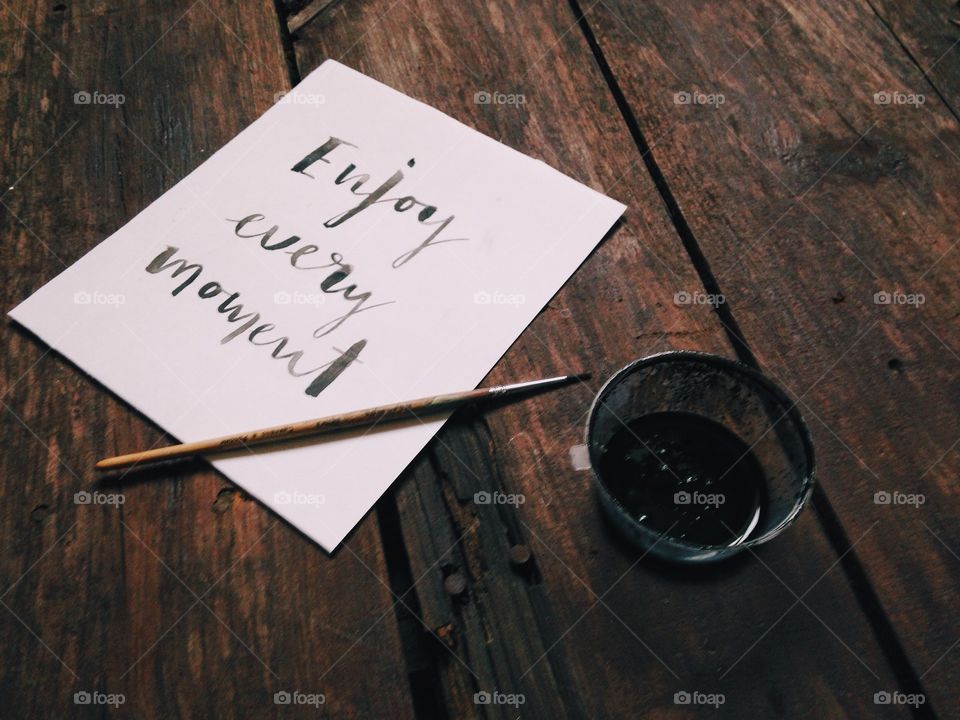 Enjoy
every
moment
foap foap foap foap foap
foap foap foap foap foap
foap foap foap foap foap
foap foap foap foap foap